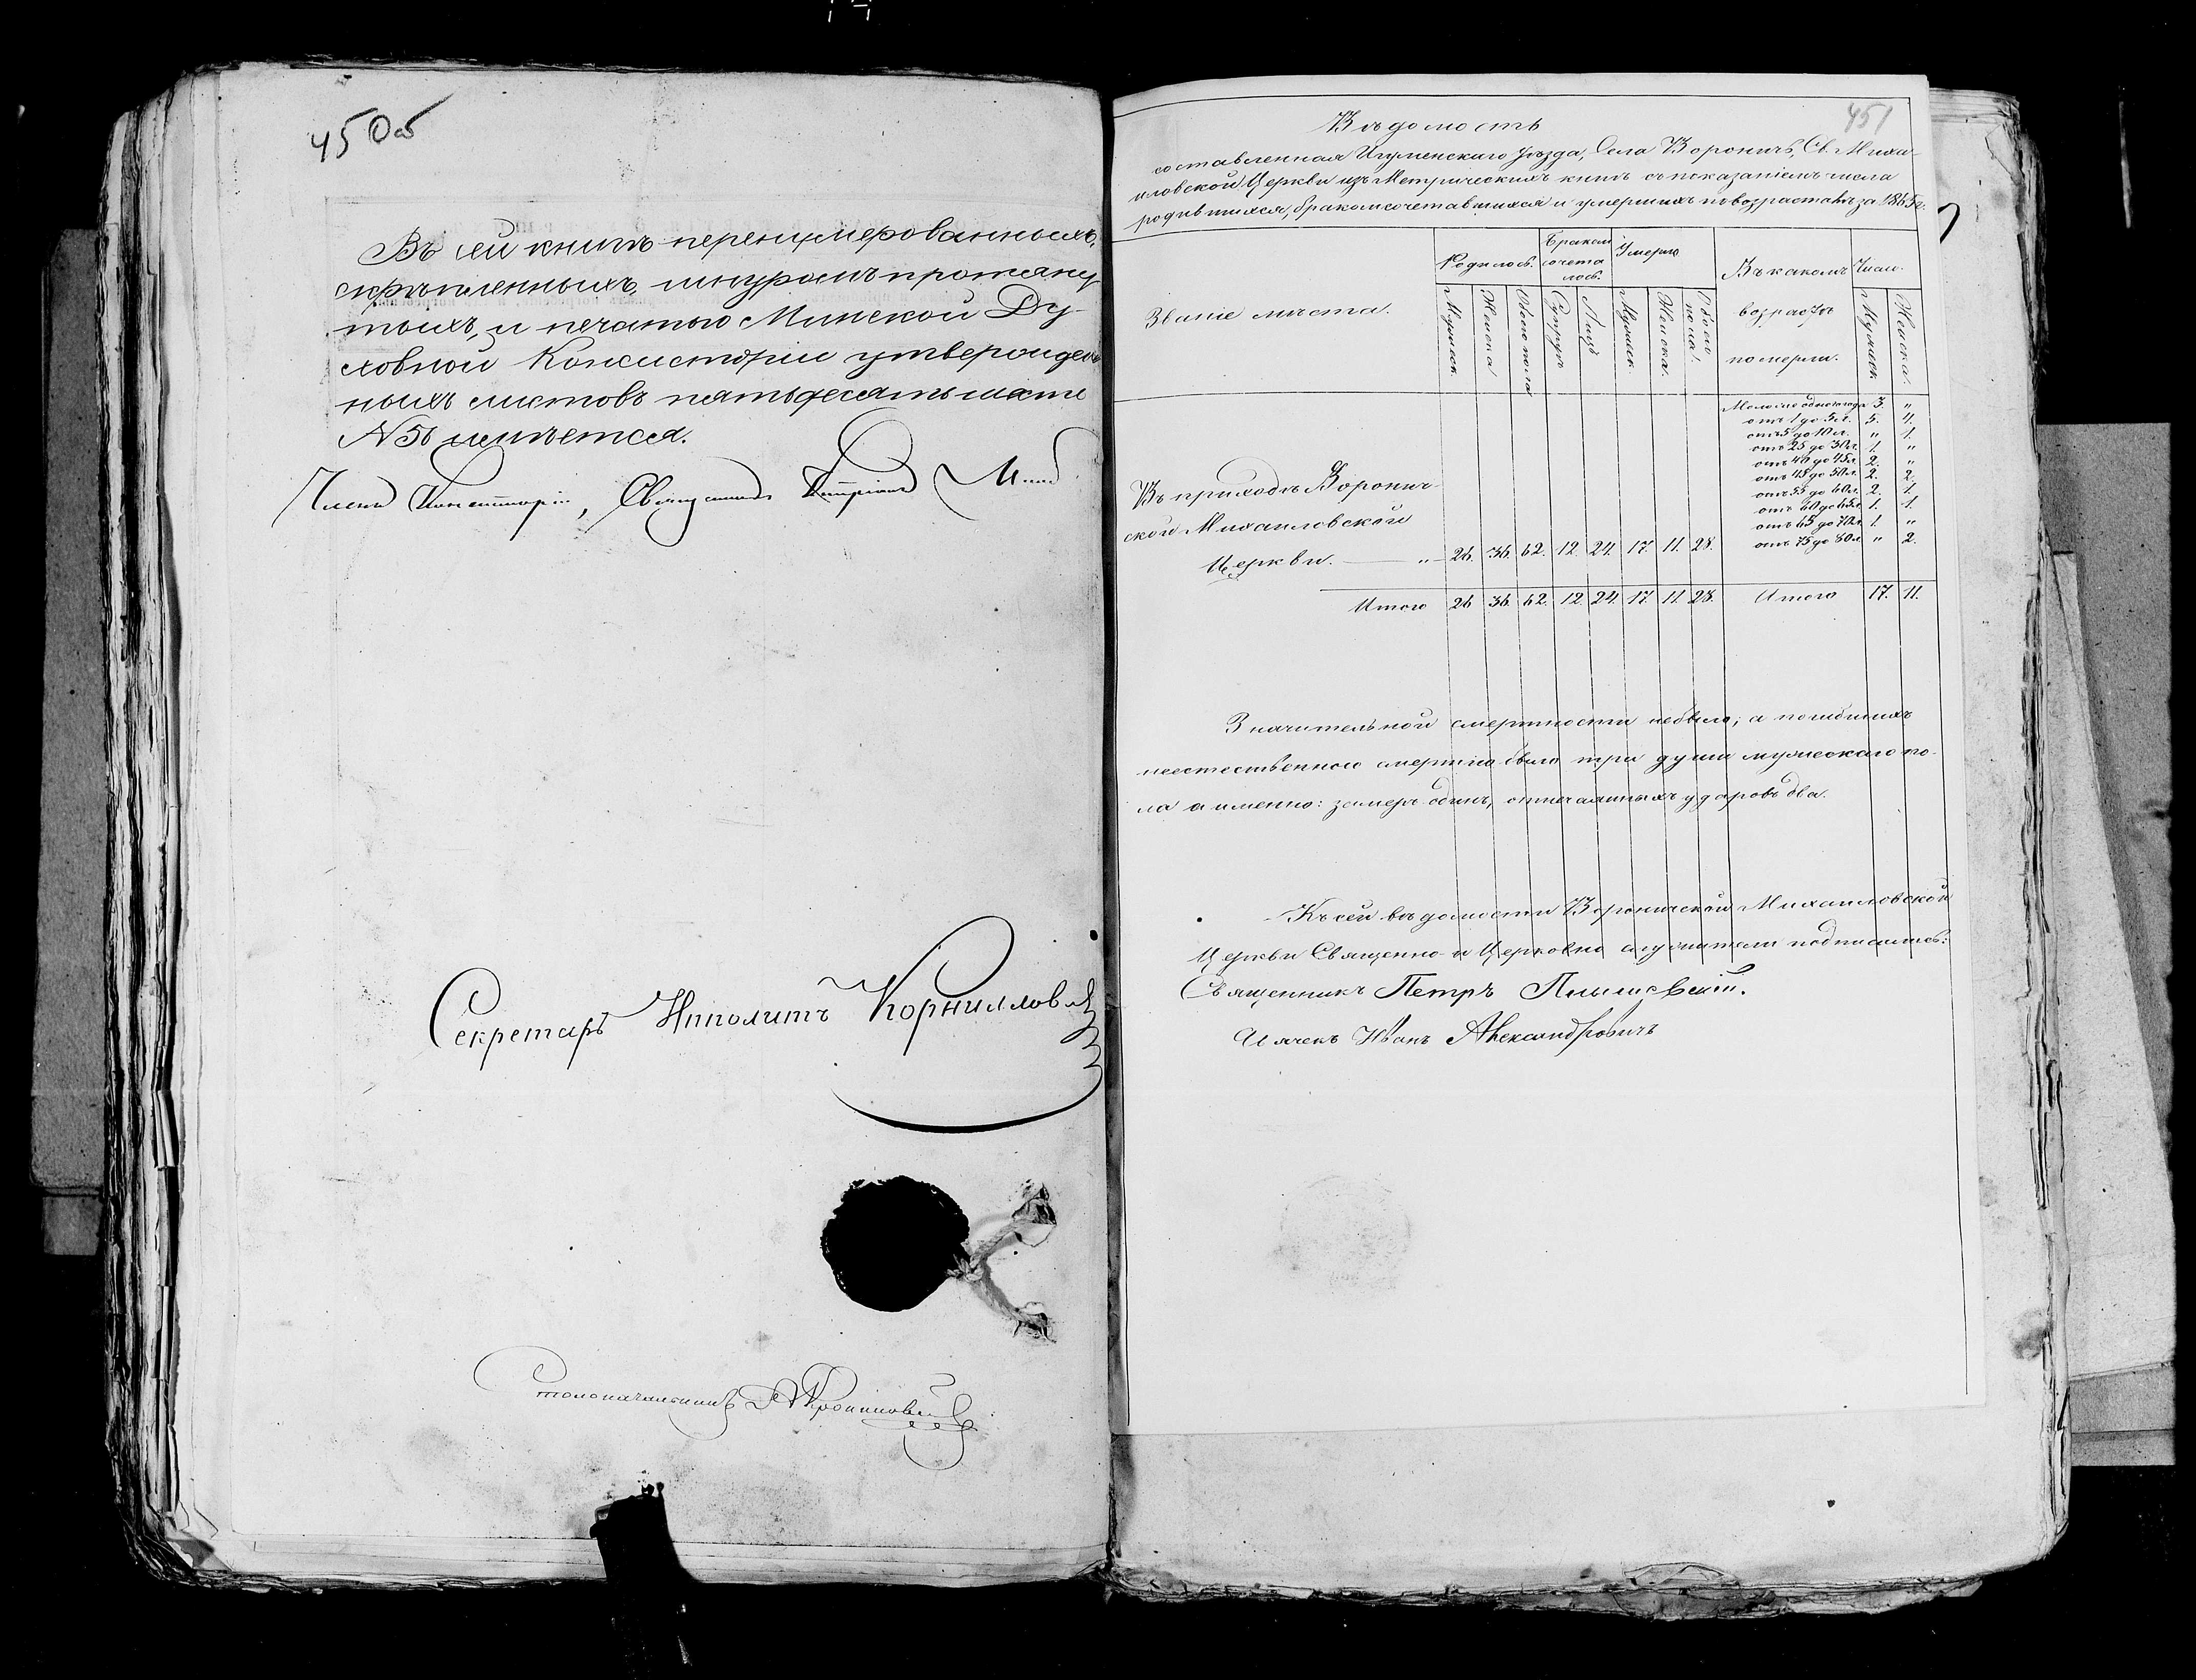 450об
Въ сей книгѣ перенумерованныхъ,
скрѣпленныхъ, шнуромъ протяну
тыхъ, и печатью Минской Ду-
ховной Консисторіи утвержден
ныхъ листовъ пятьдесятъ шесть
№ 56 имѣется.
Членъ Консисторіи, Священникъ
Секретарь Ипполитъ Корниллов
Столоначальникъ
451
Вѣдомость
составленная Игуменскаго уѣзда, Села Вороничъ, Св. Миха-
иловской Церкви изъ Метрическихъ книгъ съ показаніемъ числа
родившихся, бракомсочетавшихся и умершихъ по возрастамъ за 1865 г.
Званіе мѣста.
Родилось.
Бракомъ сочета лось.
Умерло
Въ какомъ возрастѣ померли.
Число.
Мужеск.
Женска
Обоего пола
Супруж
Лицъ
Мужеск.
Женска.
Обоего пола.
Мужеск
Женска.
Моложе одного года 3. "
отъ 1 до 5 л. 5. 4.
отъ 5 до 10 л. " 1.
отъ 25 до 30 л. 1. "
отъ 40 до 45 л. 2. "
отъ 45 до 50 л. 2. 2.
отъ 55 до 60 л. 2. 1.
отъ 60 до 65 л. 1. 1.
отъ 65 до 70 л. 1. "
отъ 75 до 80 л. " 2.
Въ приходѣ Воронич-
ской Михаиловской
Церкви. " 26. 36. 62. 12. 24. 17. 11. 28.
Итого 26 36. 62. 12. 24. 17. 11. 28. Итого 17. 11.
Значительной смертности небыло; а погибшихъ
неестественною смертію было три души мужескаго по-
ла а именно: замерз одинъ, отъ нечаянныхъ ударовъ два.
Къ сей вѣдомости Вороничской Михаиловской
Церкви Священно и Церковно служители подписались:
Священникъ Петръ
Дьячекъ Иванъ Александровичъ